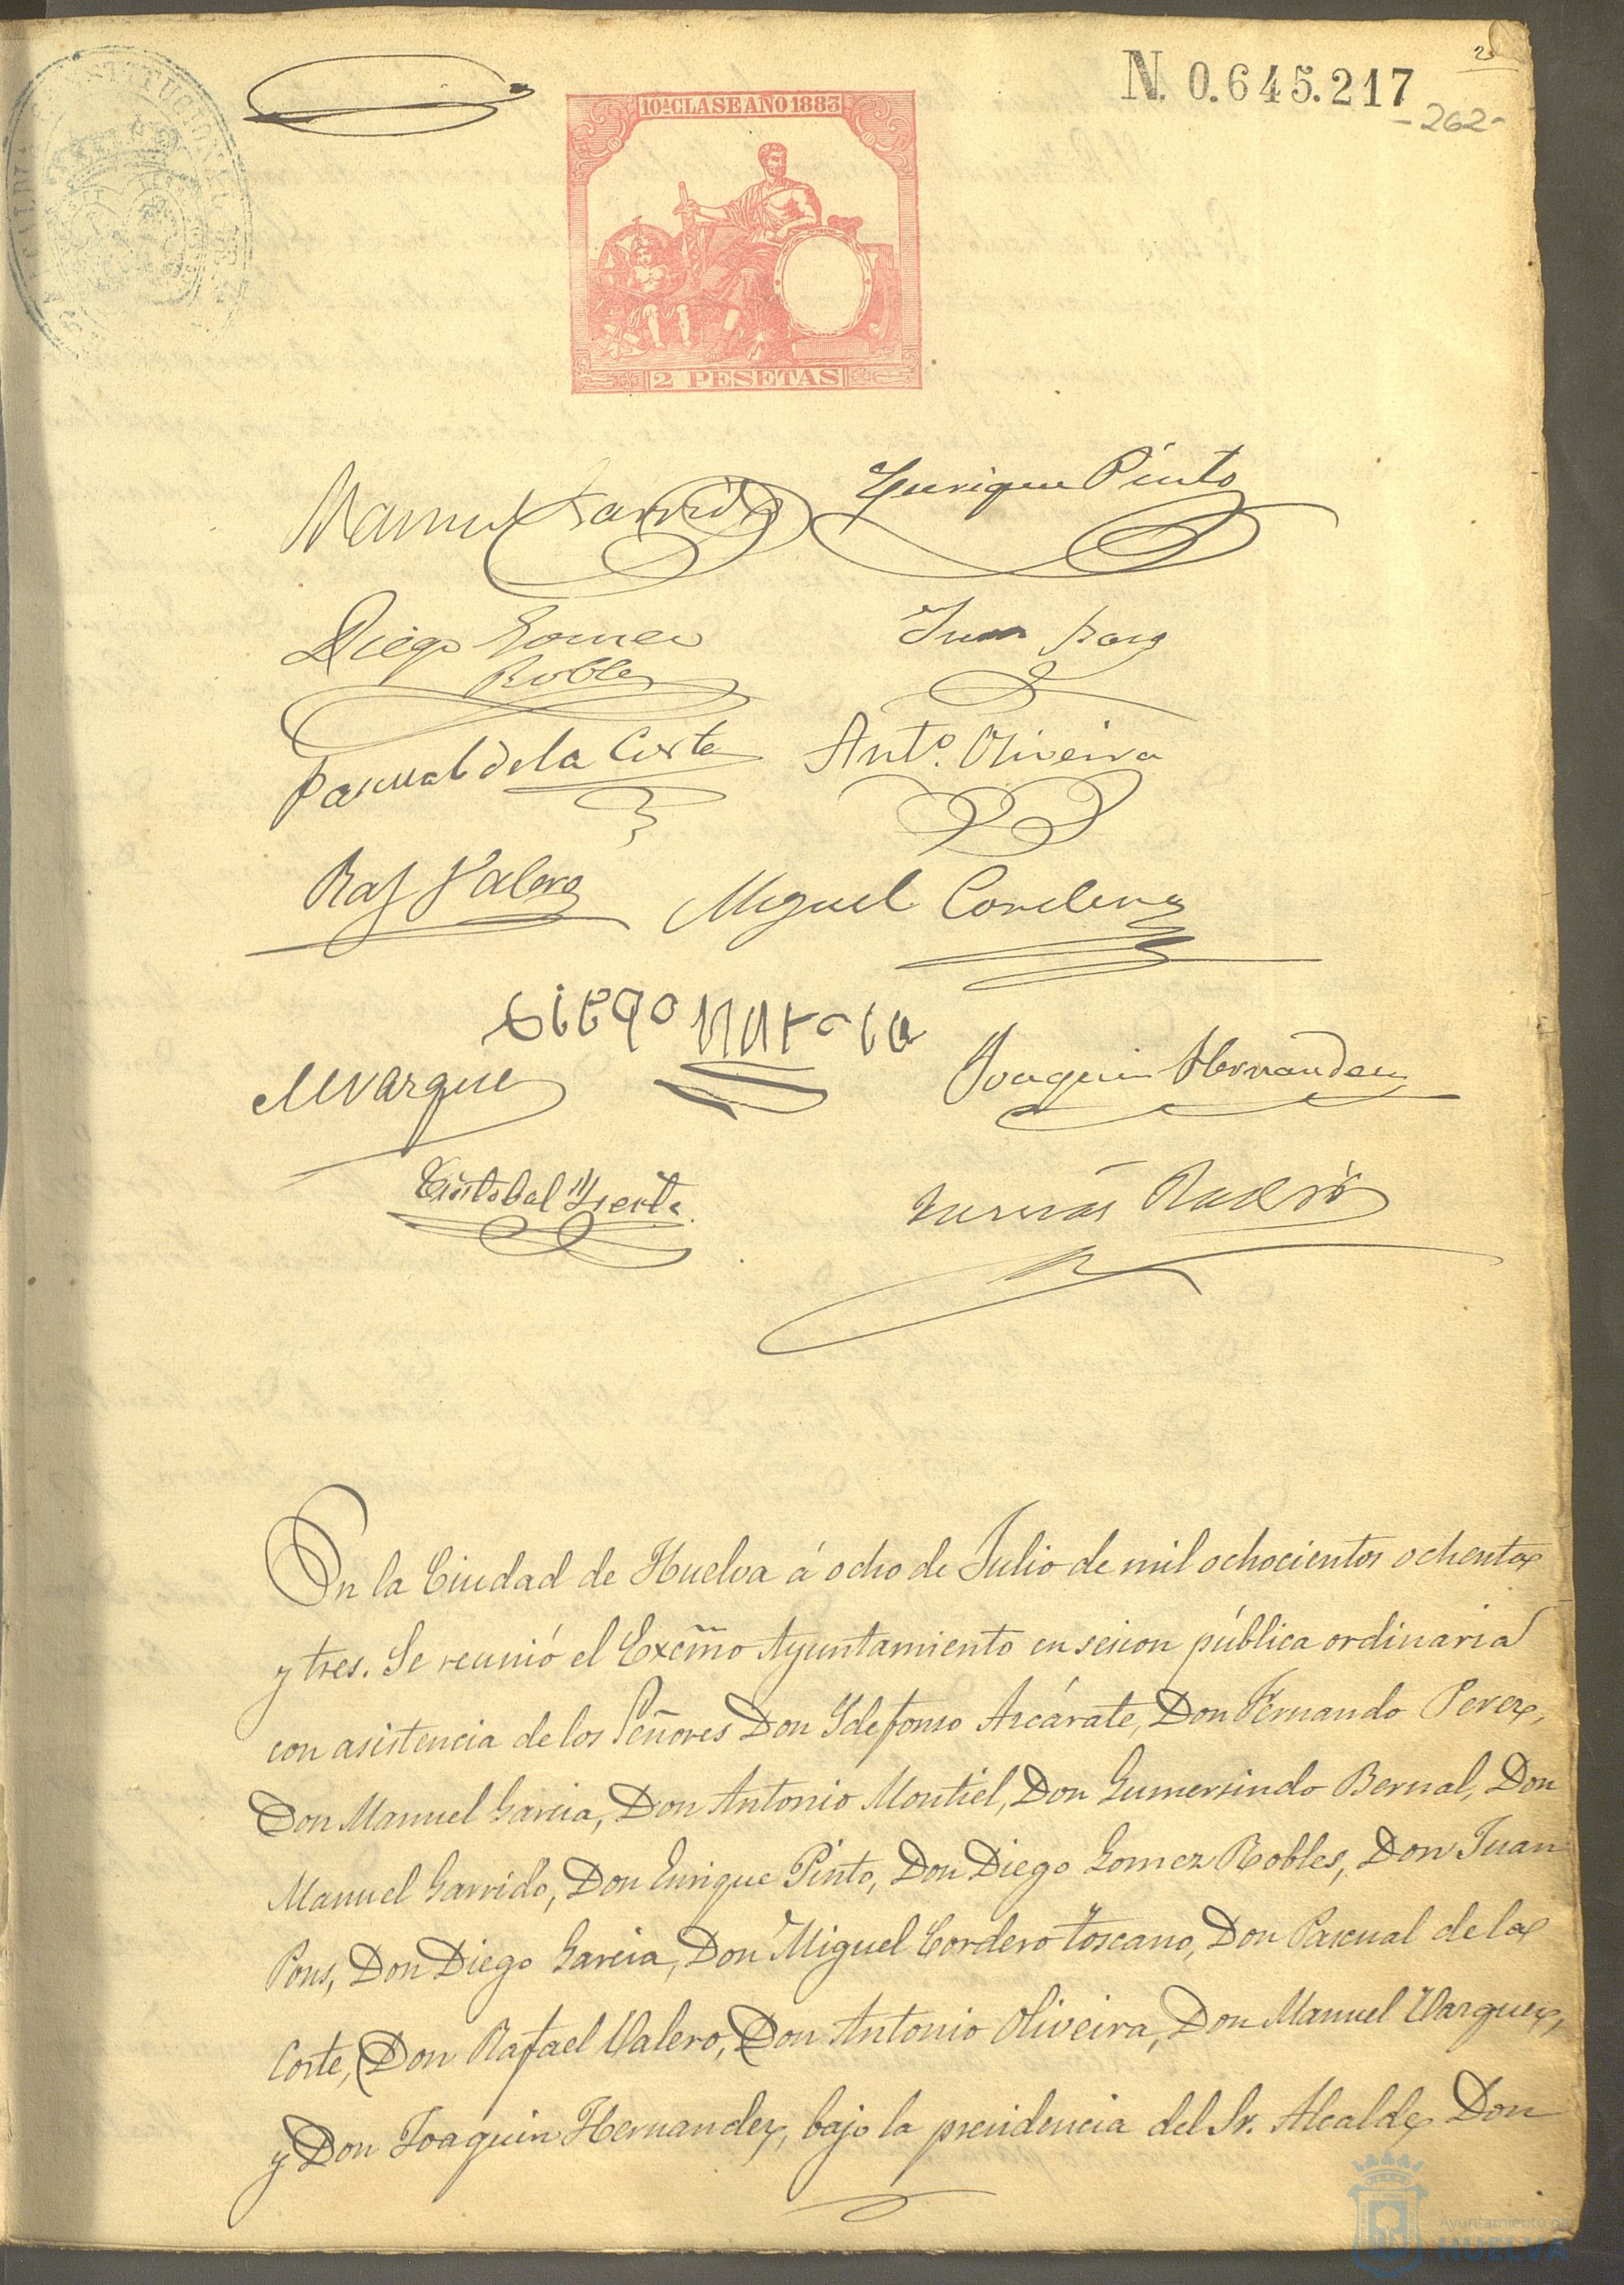 N. 0.645.217
-262-
10ª CLASE AÑO 1883
2 PESETAS
Manuel Garrido
Enrique Pinto
Diego Gomez
Robles
Juan Pons
Pascual de la Corte
Antº. Oliveira
Raf Valero
Miguel Cordero
Diego Garcia
MVarguez
Joaquin Hernandez
Cristobal
En la Ciudad de Huelva á ocho de Julio de mil ochocientos ochenta
y tres. Se reunió el Excmo Ayuntamiento en sesion pública ordinaria
con asistencia de los Señores Don Yldefonso Azcárate, Don Fernando Perez,
Don Manuel Garcia, Don Antonio Montiel, Don Gumersindo Bernal, Don
Manuel Garrido, Don Enrique Pinto, Don Diego Gomez Robles, Don Juan
Pons, Don Diego Garcia, Don Miguel Cordero Toscano, Don Pascual de la
Corte, Don Rafael Valero, Don Antonio Oliveira, Don Manuel Varguez,
y Don Joaquin Hernandez, bajo la presidencia del Sr. Alcalde Don
Ayuntamiento de
HUELVA